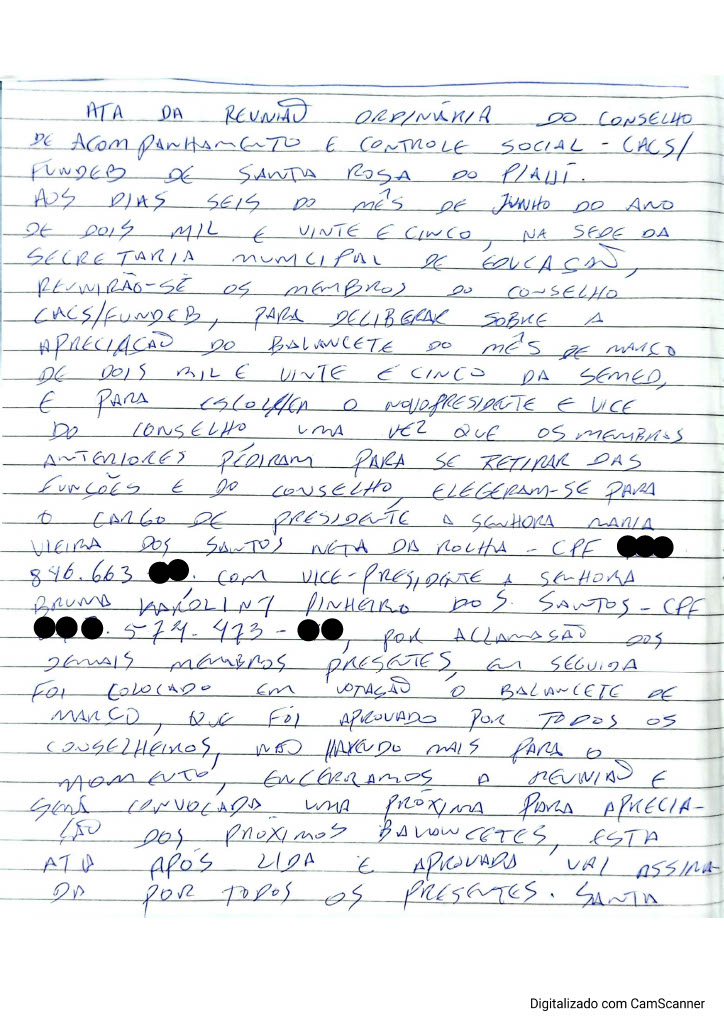 ATA DA REUNIÃO ORDINÁRIA DO CONSELHO
DE ACOMPANHAMENTO E CONTROLE SOCIAL - CACS/
FUNDEB DE SANTA ROSA DO PIAUÍ.
AOS DIAS SEIS DO MÊS DE JUNHO DO ANO
DE DOIS MIL E VINTE E CINCO, NA SEDE DA
SECRETARIA MUNICIPAL DE EDUCAÇÃO,
REUNIRÃO-SE OS MEMBROS DO CONSELHO
CACS/FUNDEB, PARA DELIBERAR SOBRE A
APRECIAÇÃO DO BALANCETE DO MÊS DE MARÇO
DE DOIS MIL E VINTE E CINCO DA SEMED,
E PARA O NOVO PRESIDENTE E VICE
DO CONSELHO UMA VEZ QUE OS MEMBROS
ANTERIORES PEDIRAM PARA SE RETIRAR DAS
FUNÇÕES E DO CONSELHO, ELEGERAM-SE PARA
O CARGO DE PRESIDENTE A SENHORA MARIA
VIEIRA DOS SANTOS NETA DA ROCHA - CPF
846.663 . COM VICE-PRESIDENTE A SENHORA
BRUNA KAROLINY PINHEIRO DOS SANTOS - CPF
. 574.473 - , POR ACLAMAÇÃO DOS
DEMAIS MEMBROS PRESENTES, EM SEGUIDA
FOI COLOCADO EM VOTAÇÃO O BALANCETE DE
MARÇO, QUE FOI APROVADO POR TODOS OS
CONSELHEIROS, NÃO HAVENDO MAIS PARA O
MOMENTO, ENCERRAMOS A REUNIÃO E
SERÁ CONVOCADA UMA PRÓXIMA PARA APRECIA-
ÇÃO DOS PRÓXIMOS BALANCETES, ESTA
ATA APÓS LIDA E APROVADA VAI ASSINA-
DA POR TODOS OS PRESENTES. SANTA
Digitalizado com CamScanner